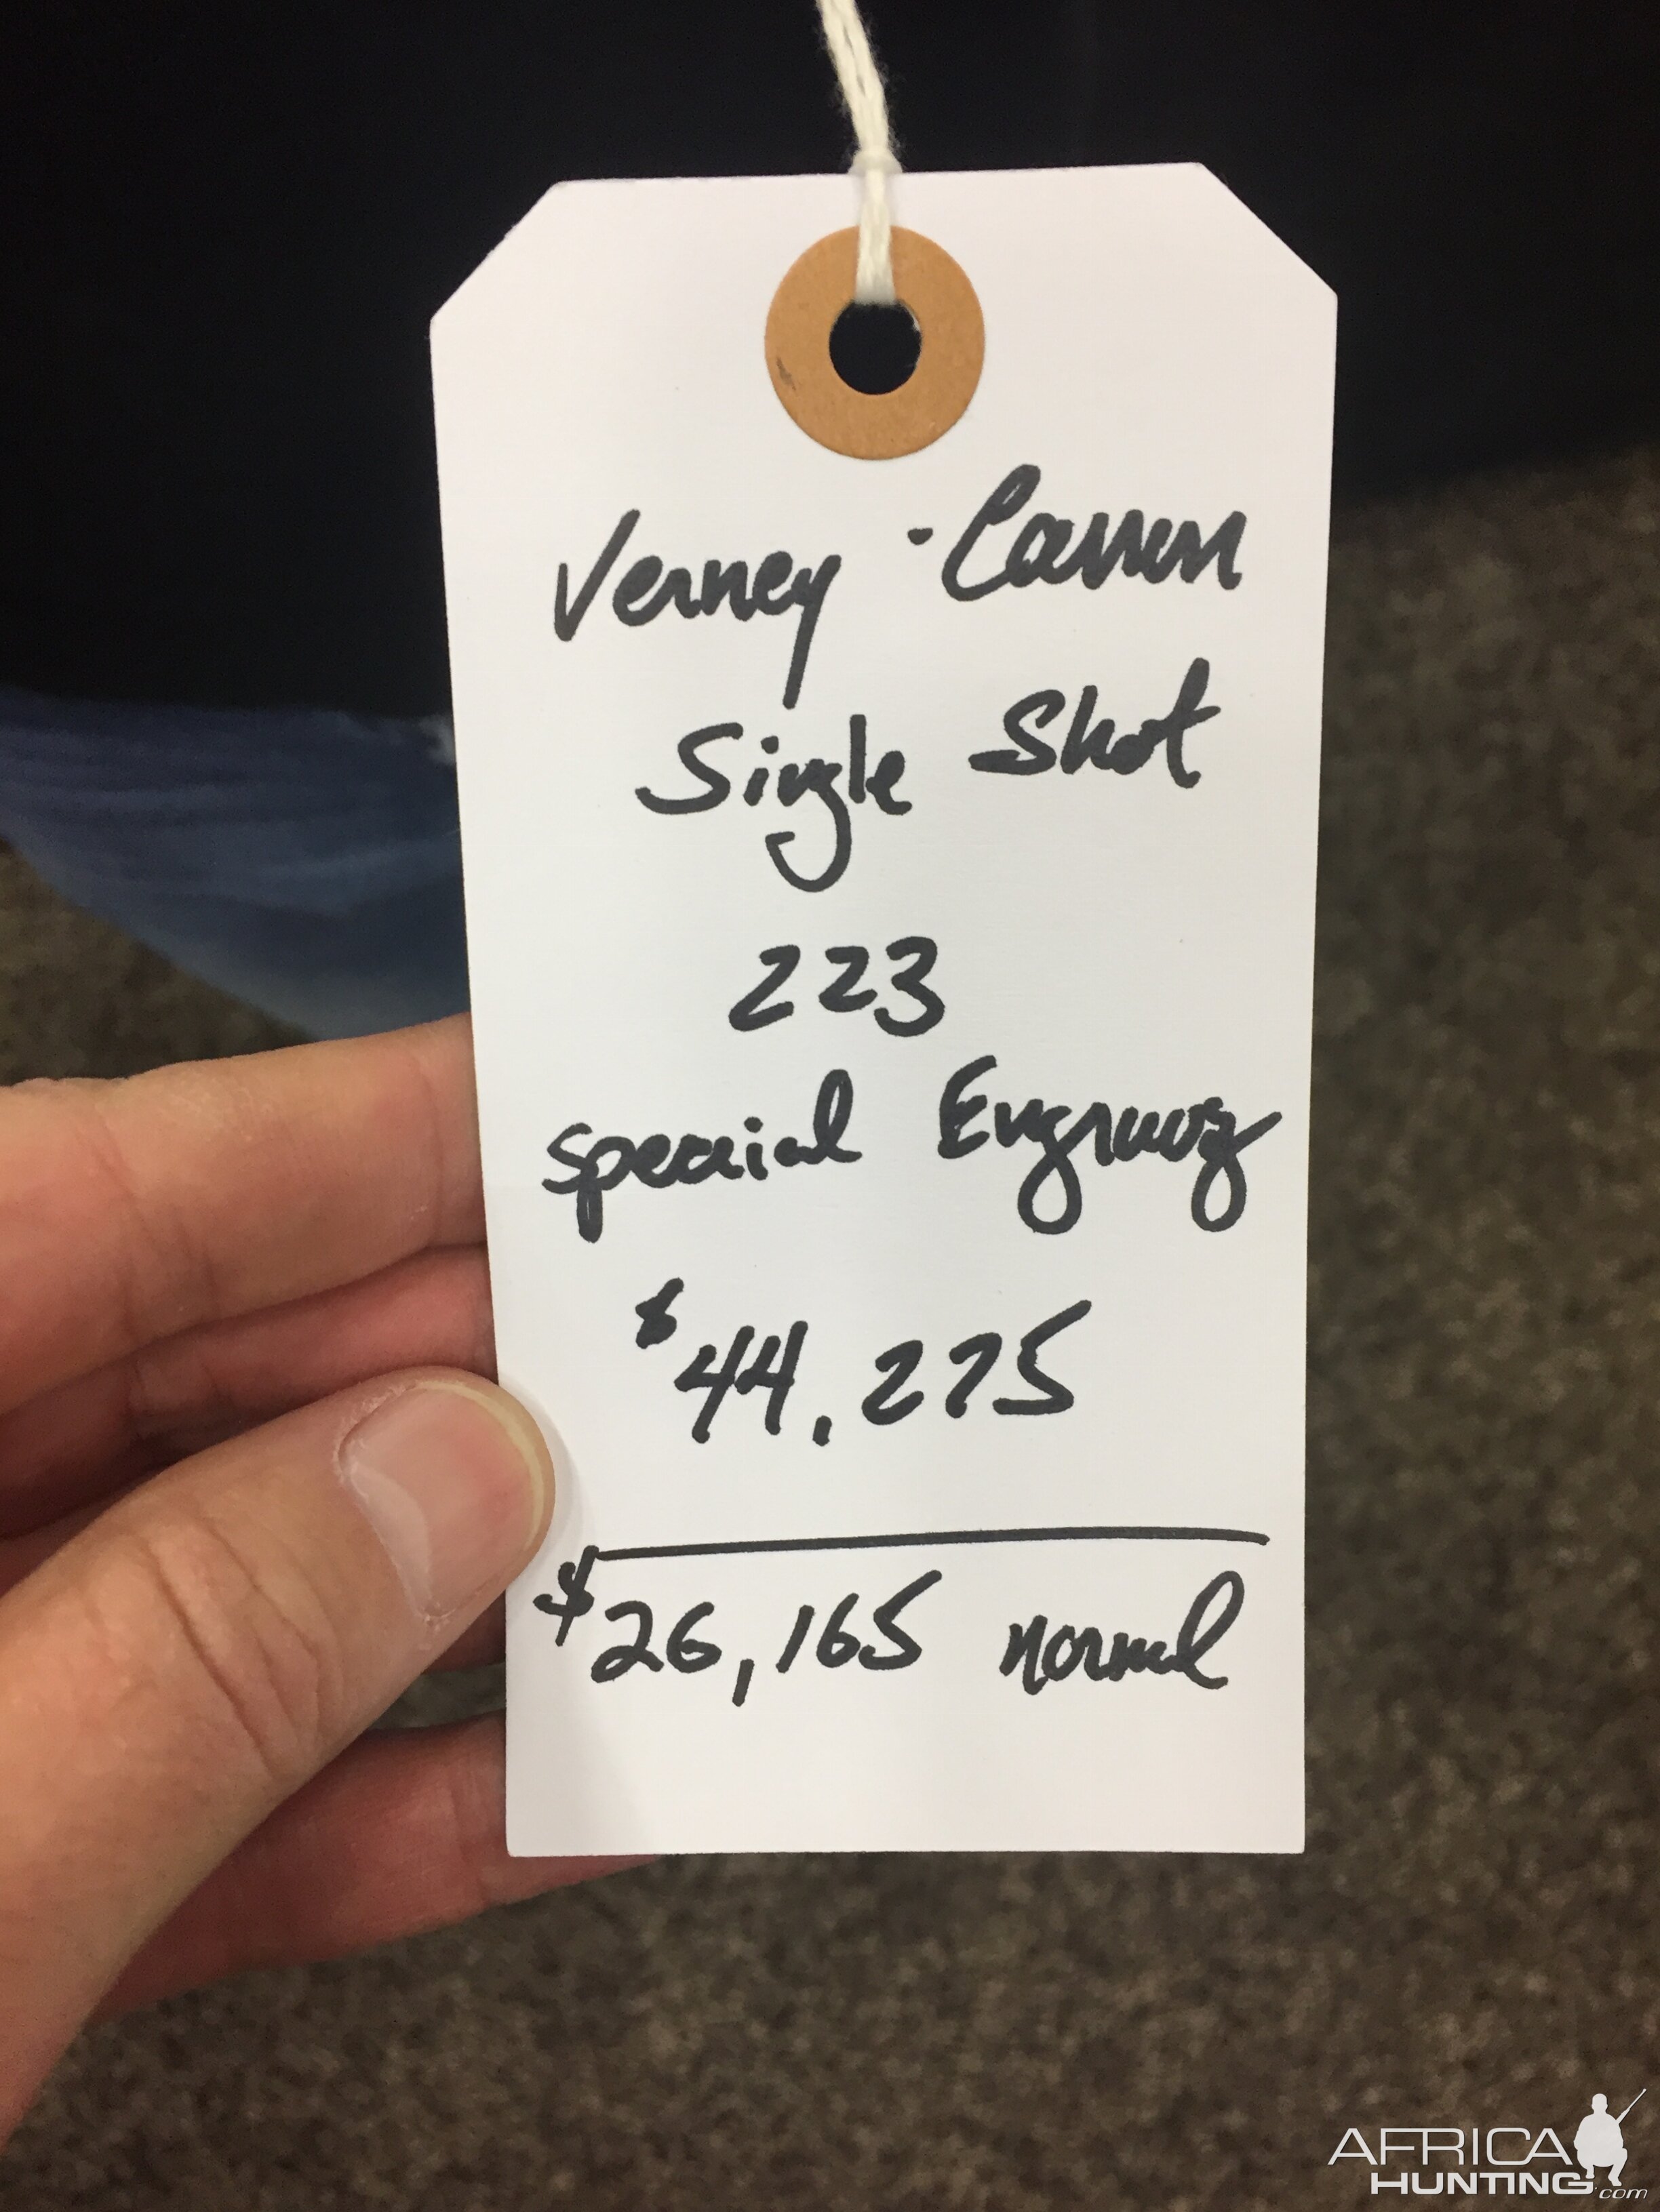 Verney-Carron
Single Shot
223
special Engraving
$44,275
$26,165 normal
AFRICA
HUNTING.com